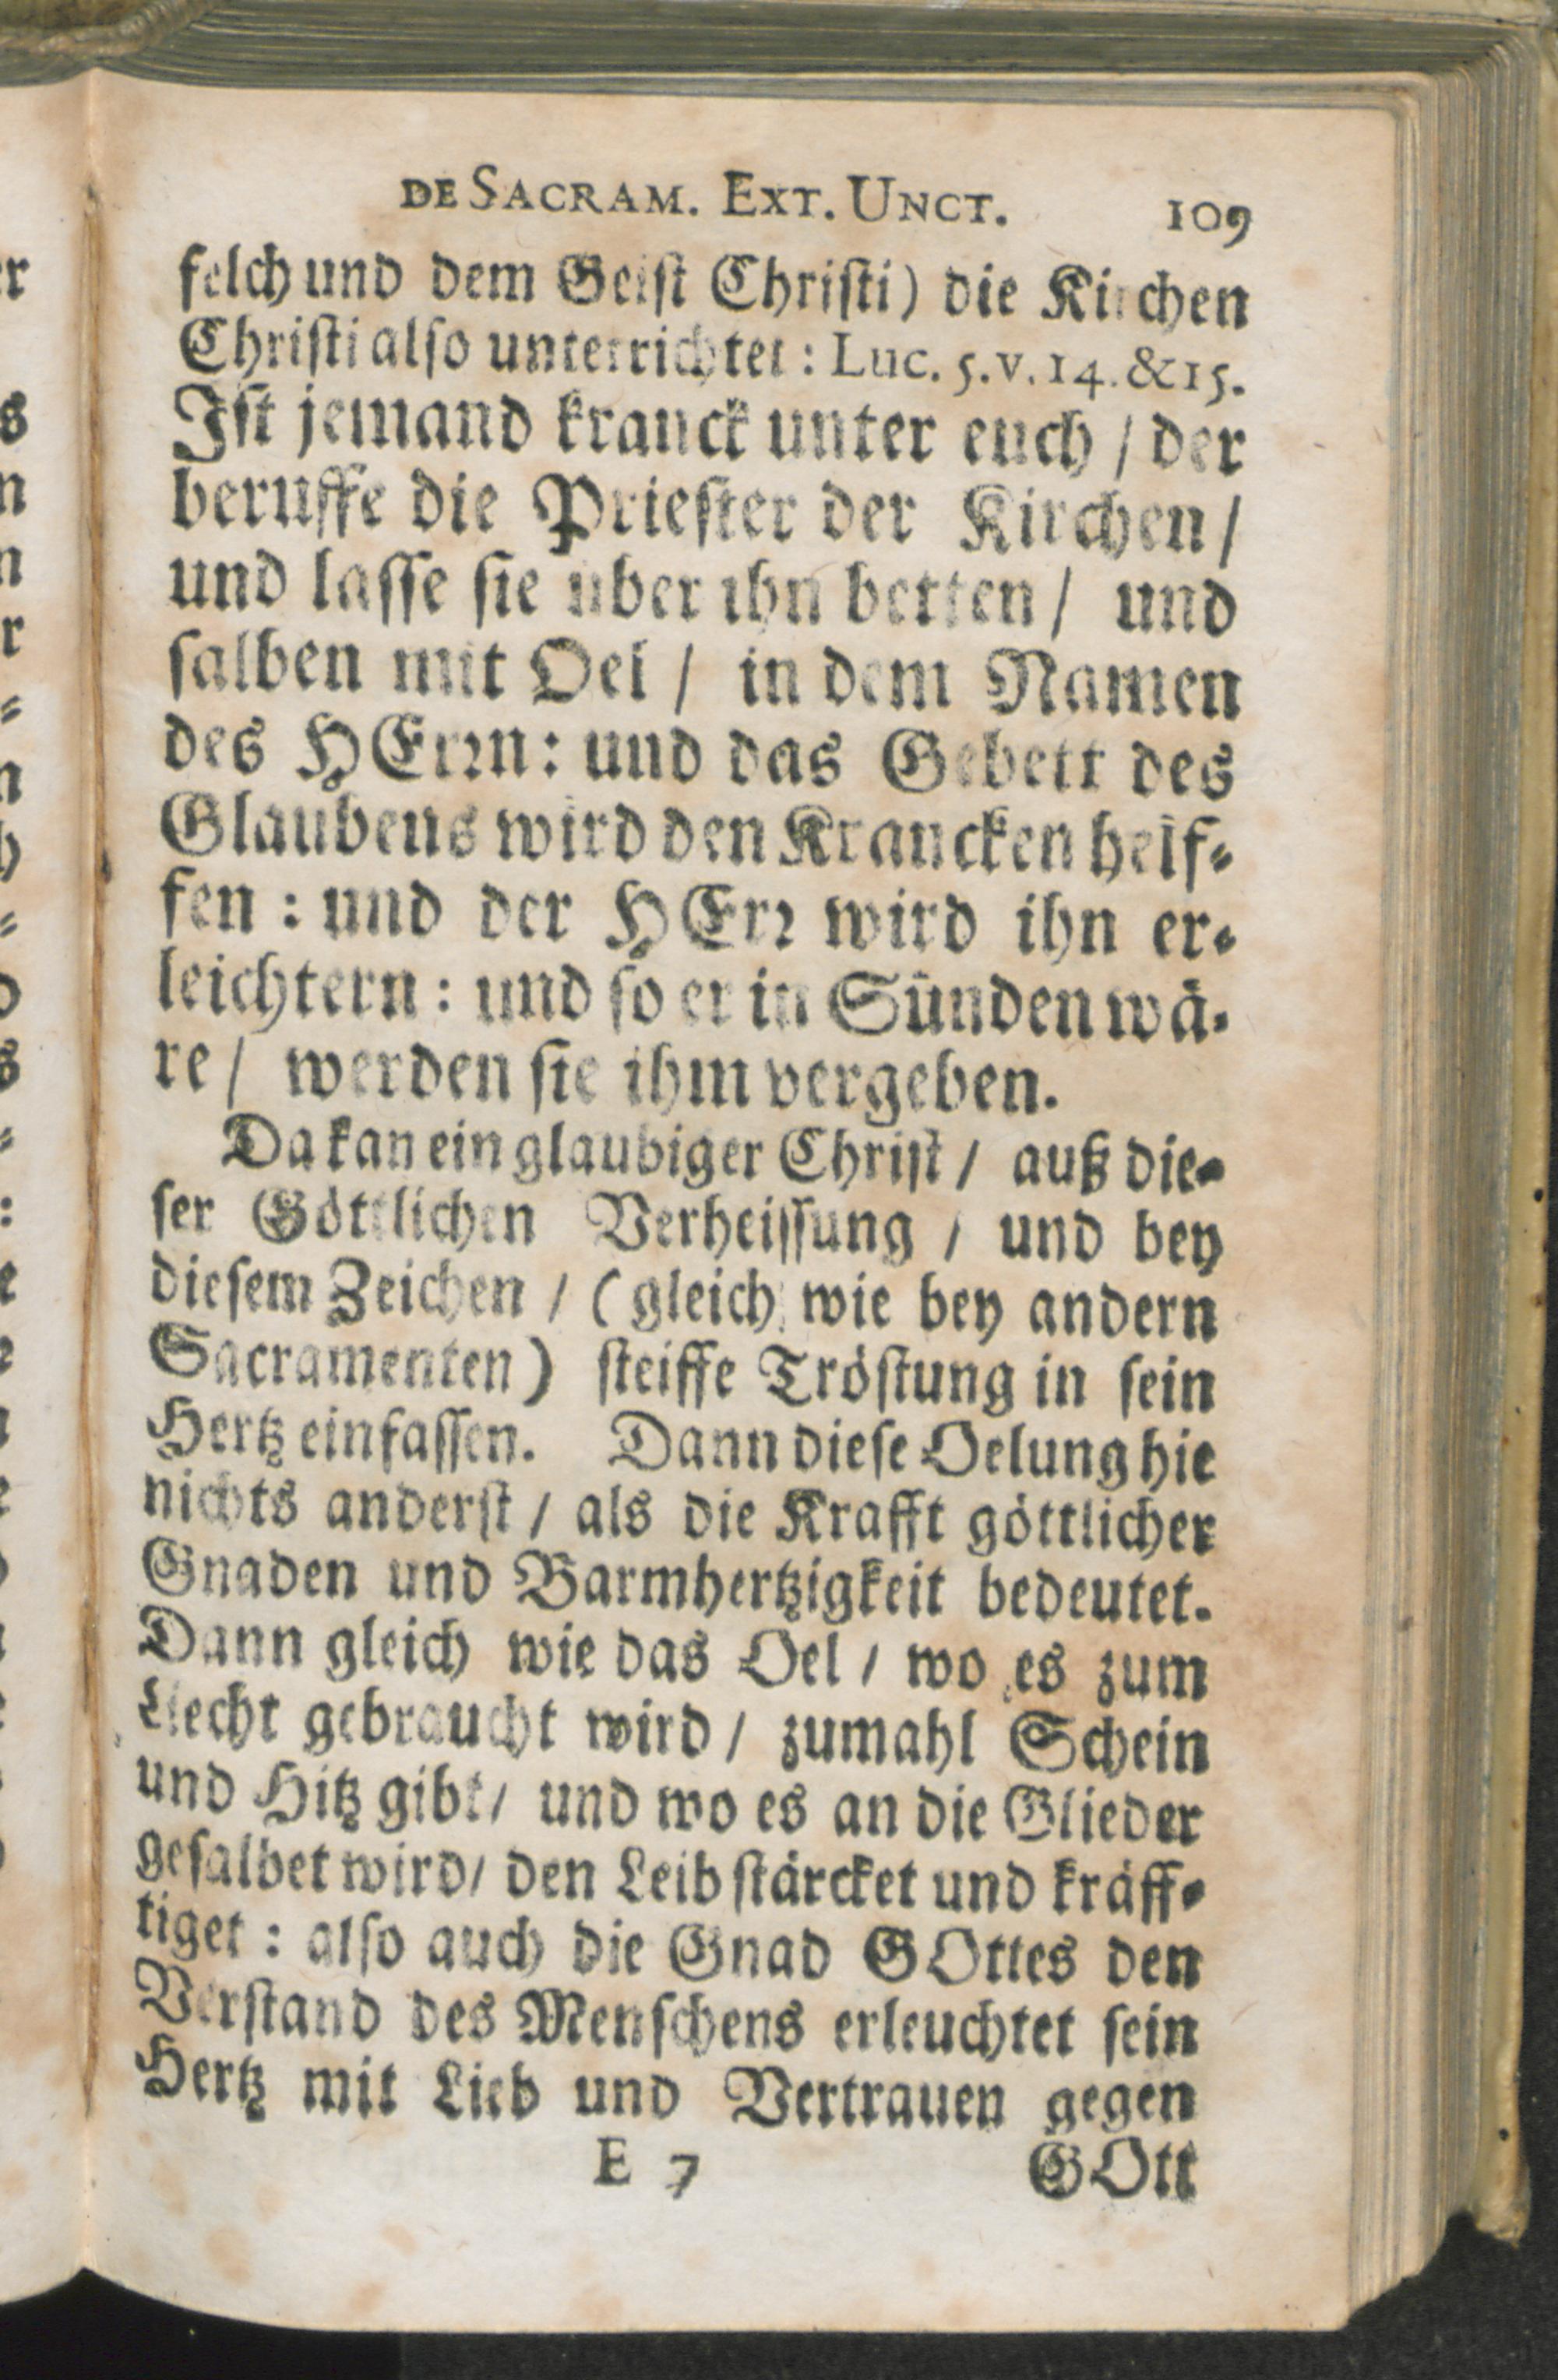 DE SACRAM. EXT. UNCT. 109
felch und dem Geist Christi) die Kirchen
Christi also unterrichtet: Luc. 5. v. 14. & 15.
Ist jemand kranck unter euch / der
beruffe die Priester der Kirchen /
und lasse sie uber ihn betten / und
salben mit Oel / in dem Namen
des HErrn: und das Gebett des
Glaubens wird den Krancken helf-
fen: und der HErr wird ihn er-
leichtern: und so er in Sünden wä-
re / werden sie ihm vergeben.
Da kan ein glaubiger Christ / auß die-
ser Göttlichen Verheissung / und bey
diesem Zeichen / (gleich wie bey andern
Sacramenten) steiffe Tröstung in sein
Hertz einfassen. Dann diese Oelung hie
nichts anderst / als die Krafft göttlicher
Gnaden und Barmhertzigkeit bedeutet.
Dann gleich wie das Oel / wo es zum
Liecht gebraucht wird / zumahl Schein
und Hitz gibt / und wo es an die Glieder
gesalbet wird / den Leib stärcket und kräff-
tiget: also auch die Gnad GOttes den
Verstand des Menschens erleuchtet sein
Hertz mit Lieb und Vertrauen gegen
E 7 GOtt